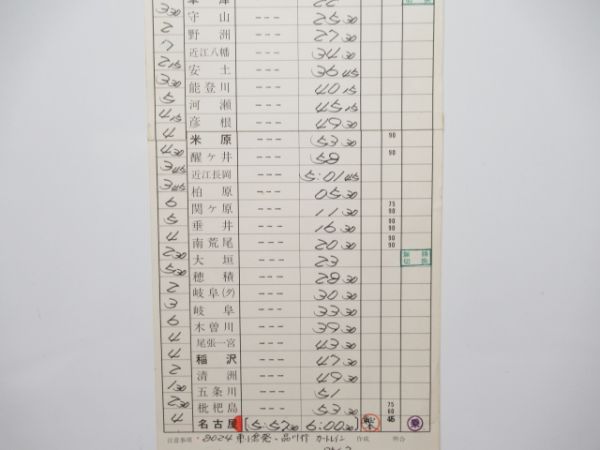 3 30 守山 --- 25 30
2 野洲 --- 27 30
7 近江八幡 --- 34 30
2 15 安土 --- 36 45
3 30 能登川 --- 40 15
5 河瀬 --- 45 15
4 15 彦根 --- 49 30
4 米原 --- 53 30 90
4 30 醒ヶ井 --- 58 90
3 45 近江長岡 --- 5:01 45
3 45 柏原 --- 05 30
6 関ヶ原 --- 11 30 75 90
5 垂井 --- 16 30 90
4 南荒尾 --- 20 30 90 90
2 30 大垣 --- 23
5 30 穂積 --- 28 30
2 岐阜(タ) --- 30 30
3 岐阜 --- 33 30
6 木曽川 --- 39 30
4 尾張一宮 --- 43 30
4 稲沢 --- 47 30
2 清洲 --- 49 30
1 30 五条川 --- 51
2 30 枇杷島 --- 53 30 75 60
4 名古屋 [5:57 30 6:00 30] 45 乗
注意事項 ・9024 東小倉発・品川行 カートレイン 作成 照合